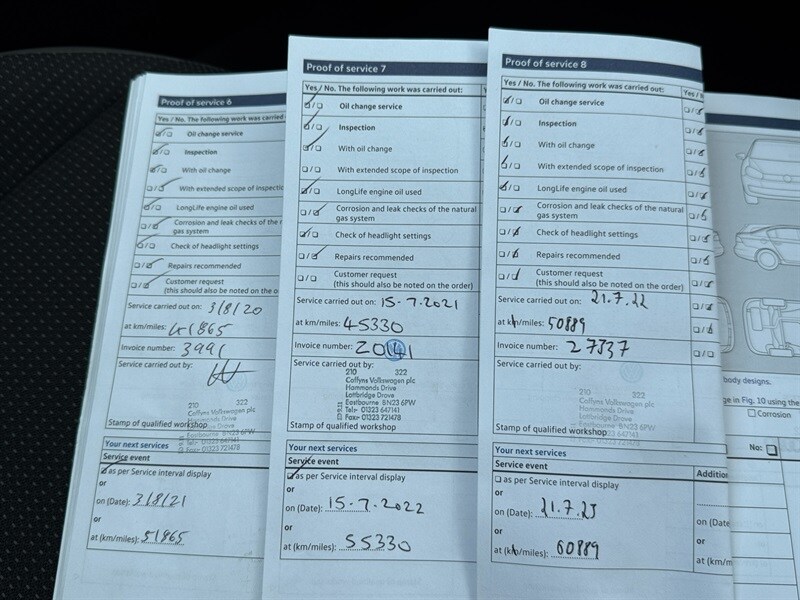 Proof of service 6
Yes / No. The following work was carried
Oil change service
Inspection
With oil change
With extended scope of inspectio
LongLife engine oil used
Corrosion and leak checks of the
gas system
Check of headlight settings
Repairs recommended
Customer request
(this should also be noted on the o
Service carried out on: 3/8/20
at km/miles: 41865
Invoice number: 3991
Service carried out by:
210 322
Caffyns Volkswagen plc
Hammonds Drive
Lottbridge Drove
Eastbourne BN23 6PW
Tel: 01323 647141
Fax: 01323 721478
Stamp of qualified workshop
Your next services
Service event
as per Service interval display
or
on (Date): 3/8/21
or
at (km/miles): 51865
Proof of service 7
Yes / No. The following work was carried out:
Oil change service
Inspection
With oil change
With extended scope of inspection
LongLife engine oil used
Corrosion and leak checks of the natural
gas system
Check of headlight settings
Repairs recommended
Customer request
(this should also be noted on the order)
Service carried out on: 15-7-2021
at km/miles: 45330
Invoice number: 20141
Service carried out by:
210 322
Caffyns Volkswagen plc
Hammonds Drive
Lottbridge Drove
Eastbourne BN23 6PW
Tel: 01323 647141
Fax: 01323 721478
Stamp of qualified workshop
Your next services
Service event
as per Service interval display
or
on (Date): 15-7-2022
or
at (km/miles): 55330
Proof of service 8
Yes / No. The following work was carried out:
Oil change service
Inspection
With oil change
With extended scope of inspection
LongLife engine oil used
Corrosion and leak checks of the natural
gas system
Check of headlight settings
Repairs recommended
Customer request
(this should also be noted on the order)
Service carried out on: 21.7.22
at km/miles: 50889
Invoice number: 27337
Service carried out by:
210 322
Caffyns Volkswagen plc
Hammonds Drive
Lottbridge Drove
Eastbourne BN23 6PW
01323 647141
01323 721478
Stamp of qualified workshop
Your next services
Service event
as per Service interval display
or
on (Date): 21.7.23
or
at (km/miles): 60889
Yes / N
Addition
on (Date
or
at (km/m
body designs.
ge in Fig. 10 using the
Corrosion
No: